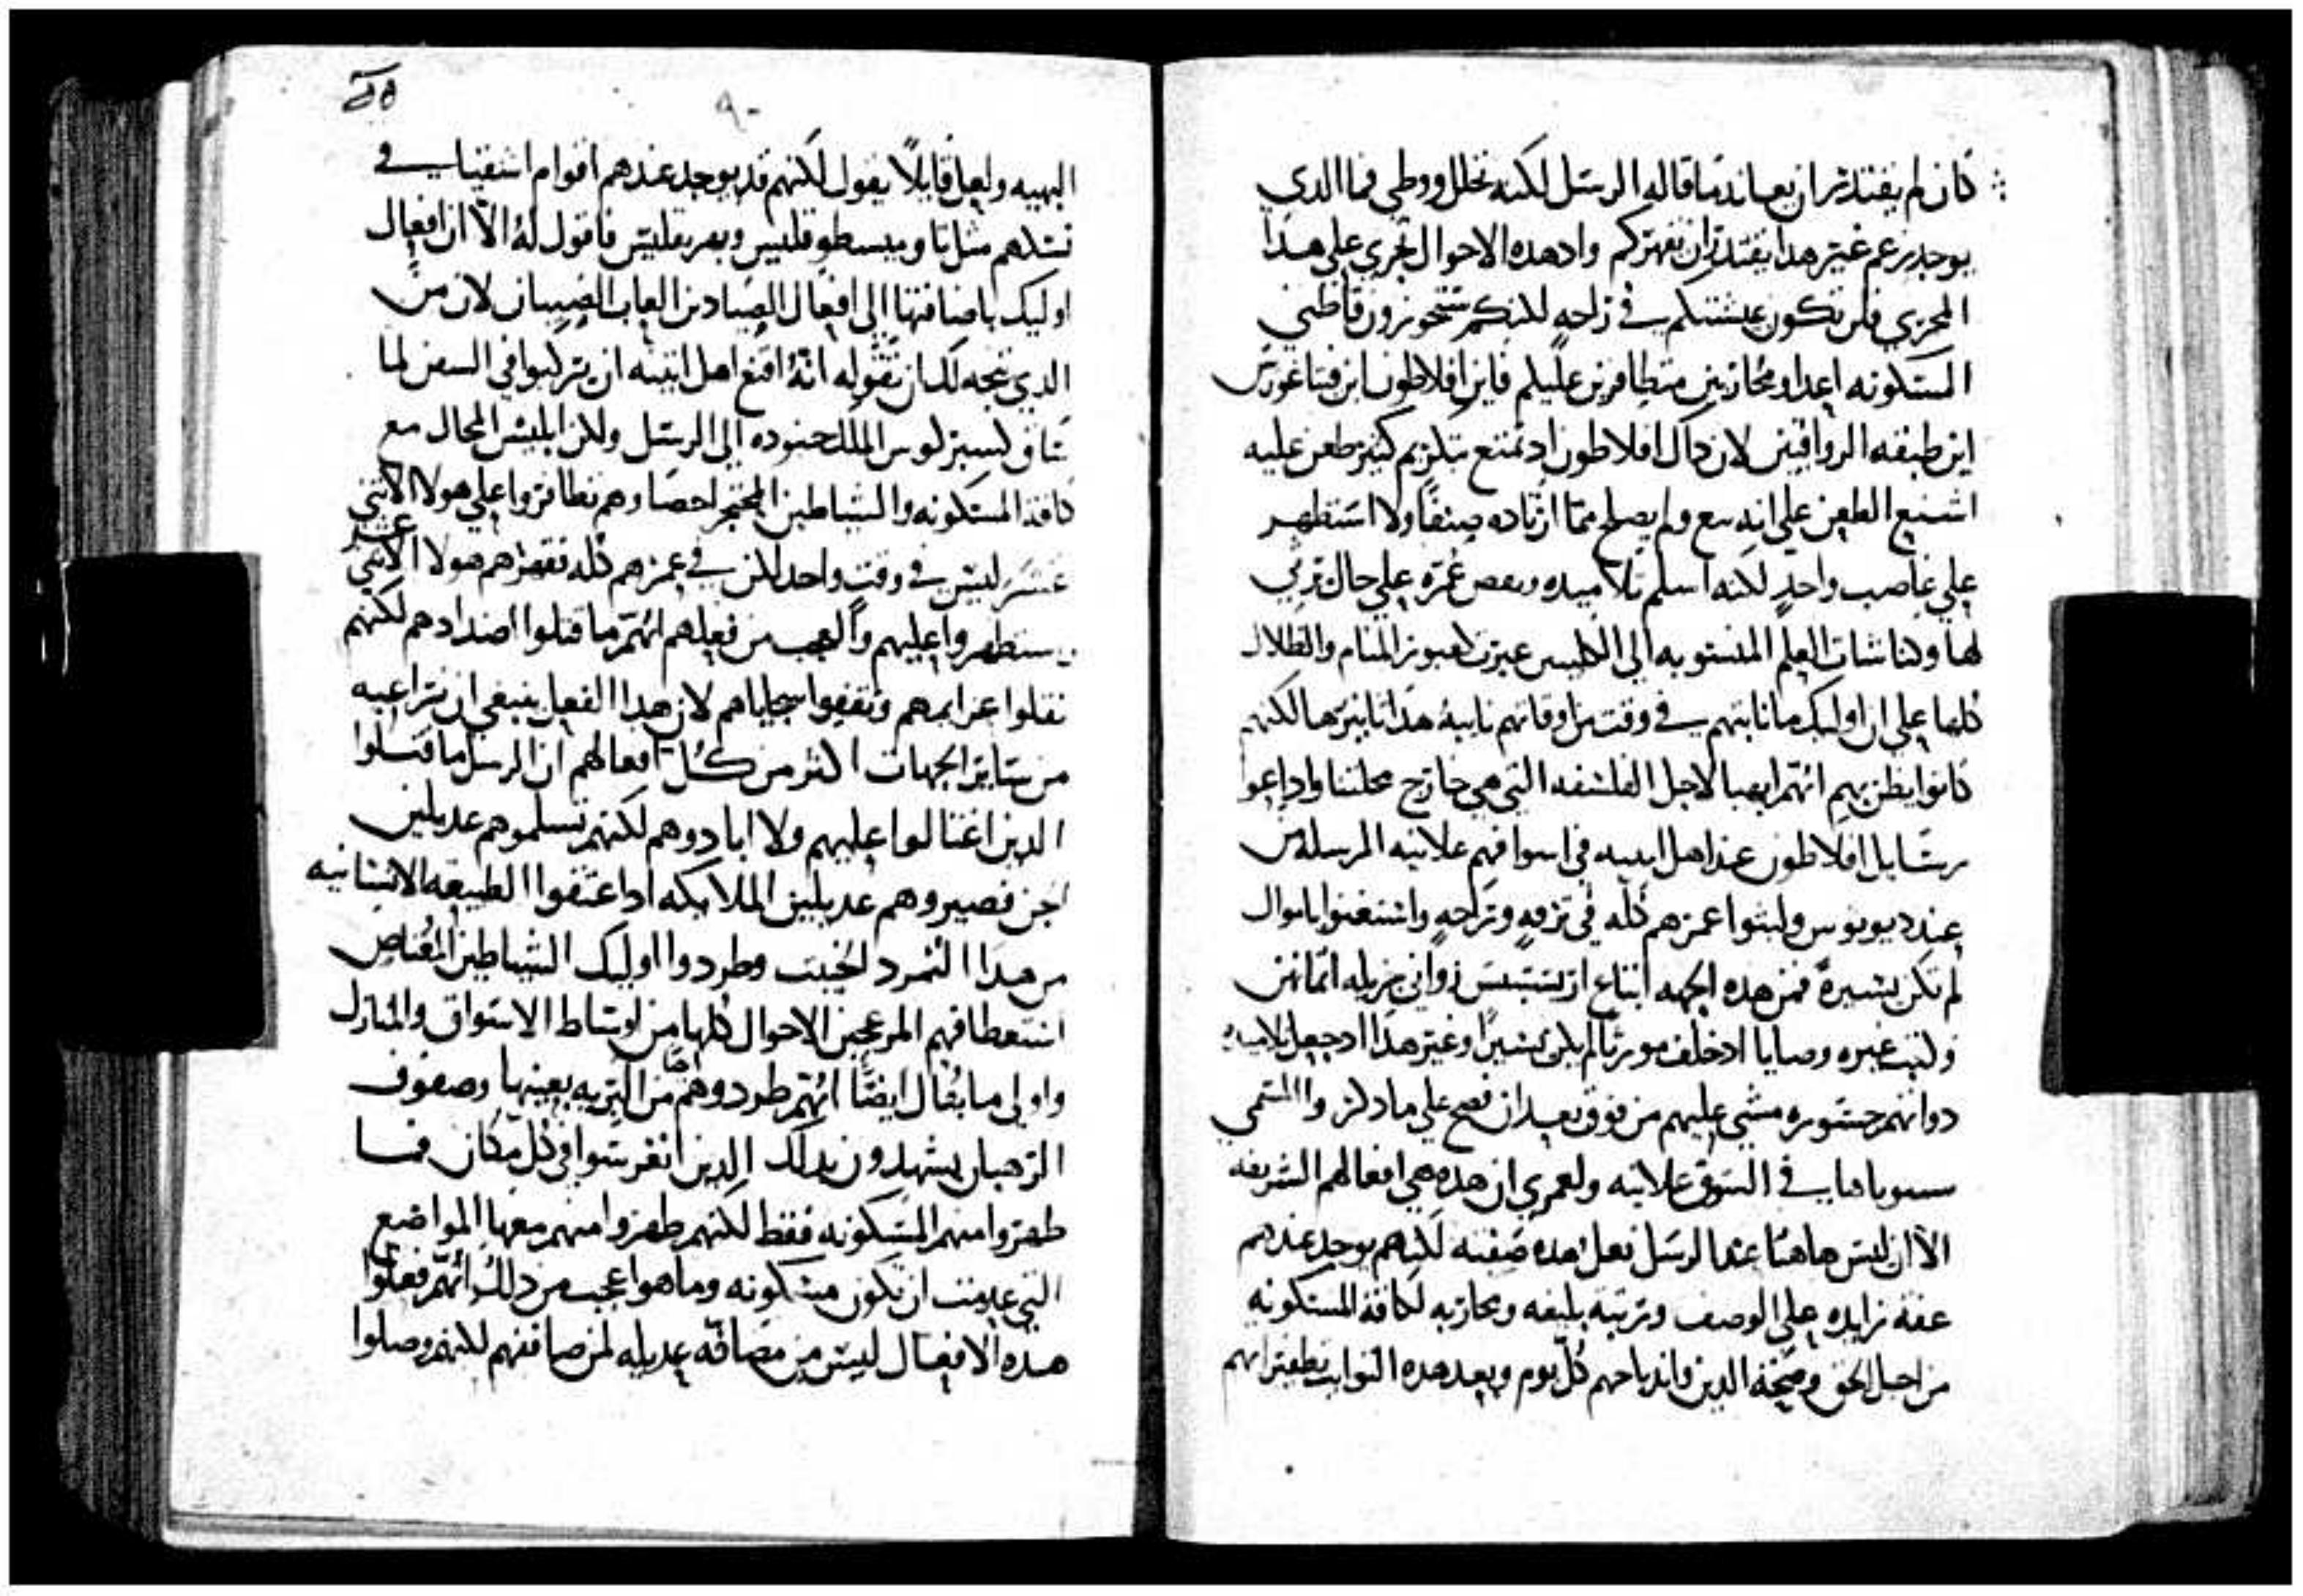 كان لم يقتدر ان يعاند ما قاله الرسل لكنه تخلل ووطى فما الدي
يوجد يزعم غيتر هدا يقتدر ان يقهركم واد هده الاحوال تجري علي هدا
المجري فلن تكون عيشتكم في راحه لكنكم ستحوزون قاطني
المسكونه اعدا ومحاربين متظافرين عليكم فاين افلاطون اين فيتاغورس
اين طبقه الرواقيين لان داك افلاطون اد تمتع بتكريم كثير طعن عليه
اشنع الطعن علي انه بيع ولم يصلح مما ارتاده صنفا ولا استظهر
علي غاصب واحد لكنه اسلم تلاميده وبعض عمره علي حال يرثي
لها وكناشات العلم المنسوبه الي عبرت كعبور المنام والظلال
كلها علي ان اوليك ما نابتهم في وقت من اوقاتهم نايبة هدا تاثيرها لكنهم
كانوا يظن بهم انهم لاجل الفلسفه التي هي خارج محلتنا واداعوا
رسايل افلاطون عند اهل اثينه في اسواقهم علانيه المرسله من
عند ديونوس ولبثوا عمرهم كله في ترفه وراحه واستغنوا باموال
لم تكن يسيرة فمن هده الجهه ابتاع ارستبس زواني جزيله اتمانهن
وكتب غيره وصايا اد خلف موروثا لم يكن يسيرا وغير هدا اد جعل تلاميده
دواتهم جسوره مشي عليهم من فوق بعد ان صح علي ما دكر والمسمي
سنوباهاي في السوق علانيه ولعمري ان هده هي افعالهم الشريفه
الا ان ليس هاهنا عند الرسل فعل هده صفته لكنهم يوجد عندهم
عفه زايده علي الوصف وترتبه بليغه ومحاربه لكافة المسكونه
من اجل الحق وصحة الدين واندباحهم كل يوم وبعد هده النوايب ظفراتهم
البهيه ولعل قايلًا يقول لكنهم قد يوجد عندهم اقوام اشقيا في
تسلمهم مثل تا وميسطوقليس وبعريقليس فاقول له الا ان افعال
اوليك باضافتها الي افعال الصيادين العاب الصبيان لان من
الدي يتجه لك ان تقوله انه اقنع اهل اتينه ان يركبوا في السفن لما
ساق كسيركوس الملك جنوده الي الرسل ولكن ابليس المحال مع
كافة المسكونه والشياطين المحتجر احصاوهم تظافروا علي هولا الاتني
عشر ليس في وقت واحد لكن في عمرهم كله فقهرهم هولا الاتني عشر
واستظهروا عليهم والعجب من فعلهم انهم ما قتلوا اضدادهم لكنهم
نقلوا عزايمهم وتقفوا سجاياهم لان هدا الفعل ينبغي ان تراعيه
من ساير الجهات اكثر من كل افعالهم ان الرسل ما قتلوا
الدين اغتالوا عليهم ولا ابادوهم لكنهم تسلموهم عديلين
الجن فصيروهم عديلين الملايكه اد اعتقوا الطبيعه الانسانيه
من هدا التمرد الخبيث وطردوا اوليك الشياطين
المزعجين الاحوال كلها من اوساط الاسواق والمنازل
واولي ما يقال ايضًا انهم طردوهم من البريه بعينها وصفوف
الرهبان يشهدون بدلك الدين انغرسوا في كل مكان فما
طهروا منهم المسكونه فقط لكنهم طهروا منهم معها المواضع
التي عدمت ان تكون مسكونه وما هو اعجب من دلك انهم فعلوا
هده الافعال ليس من مصافه عديله لمن صاففهم لكنهم وصلوا